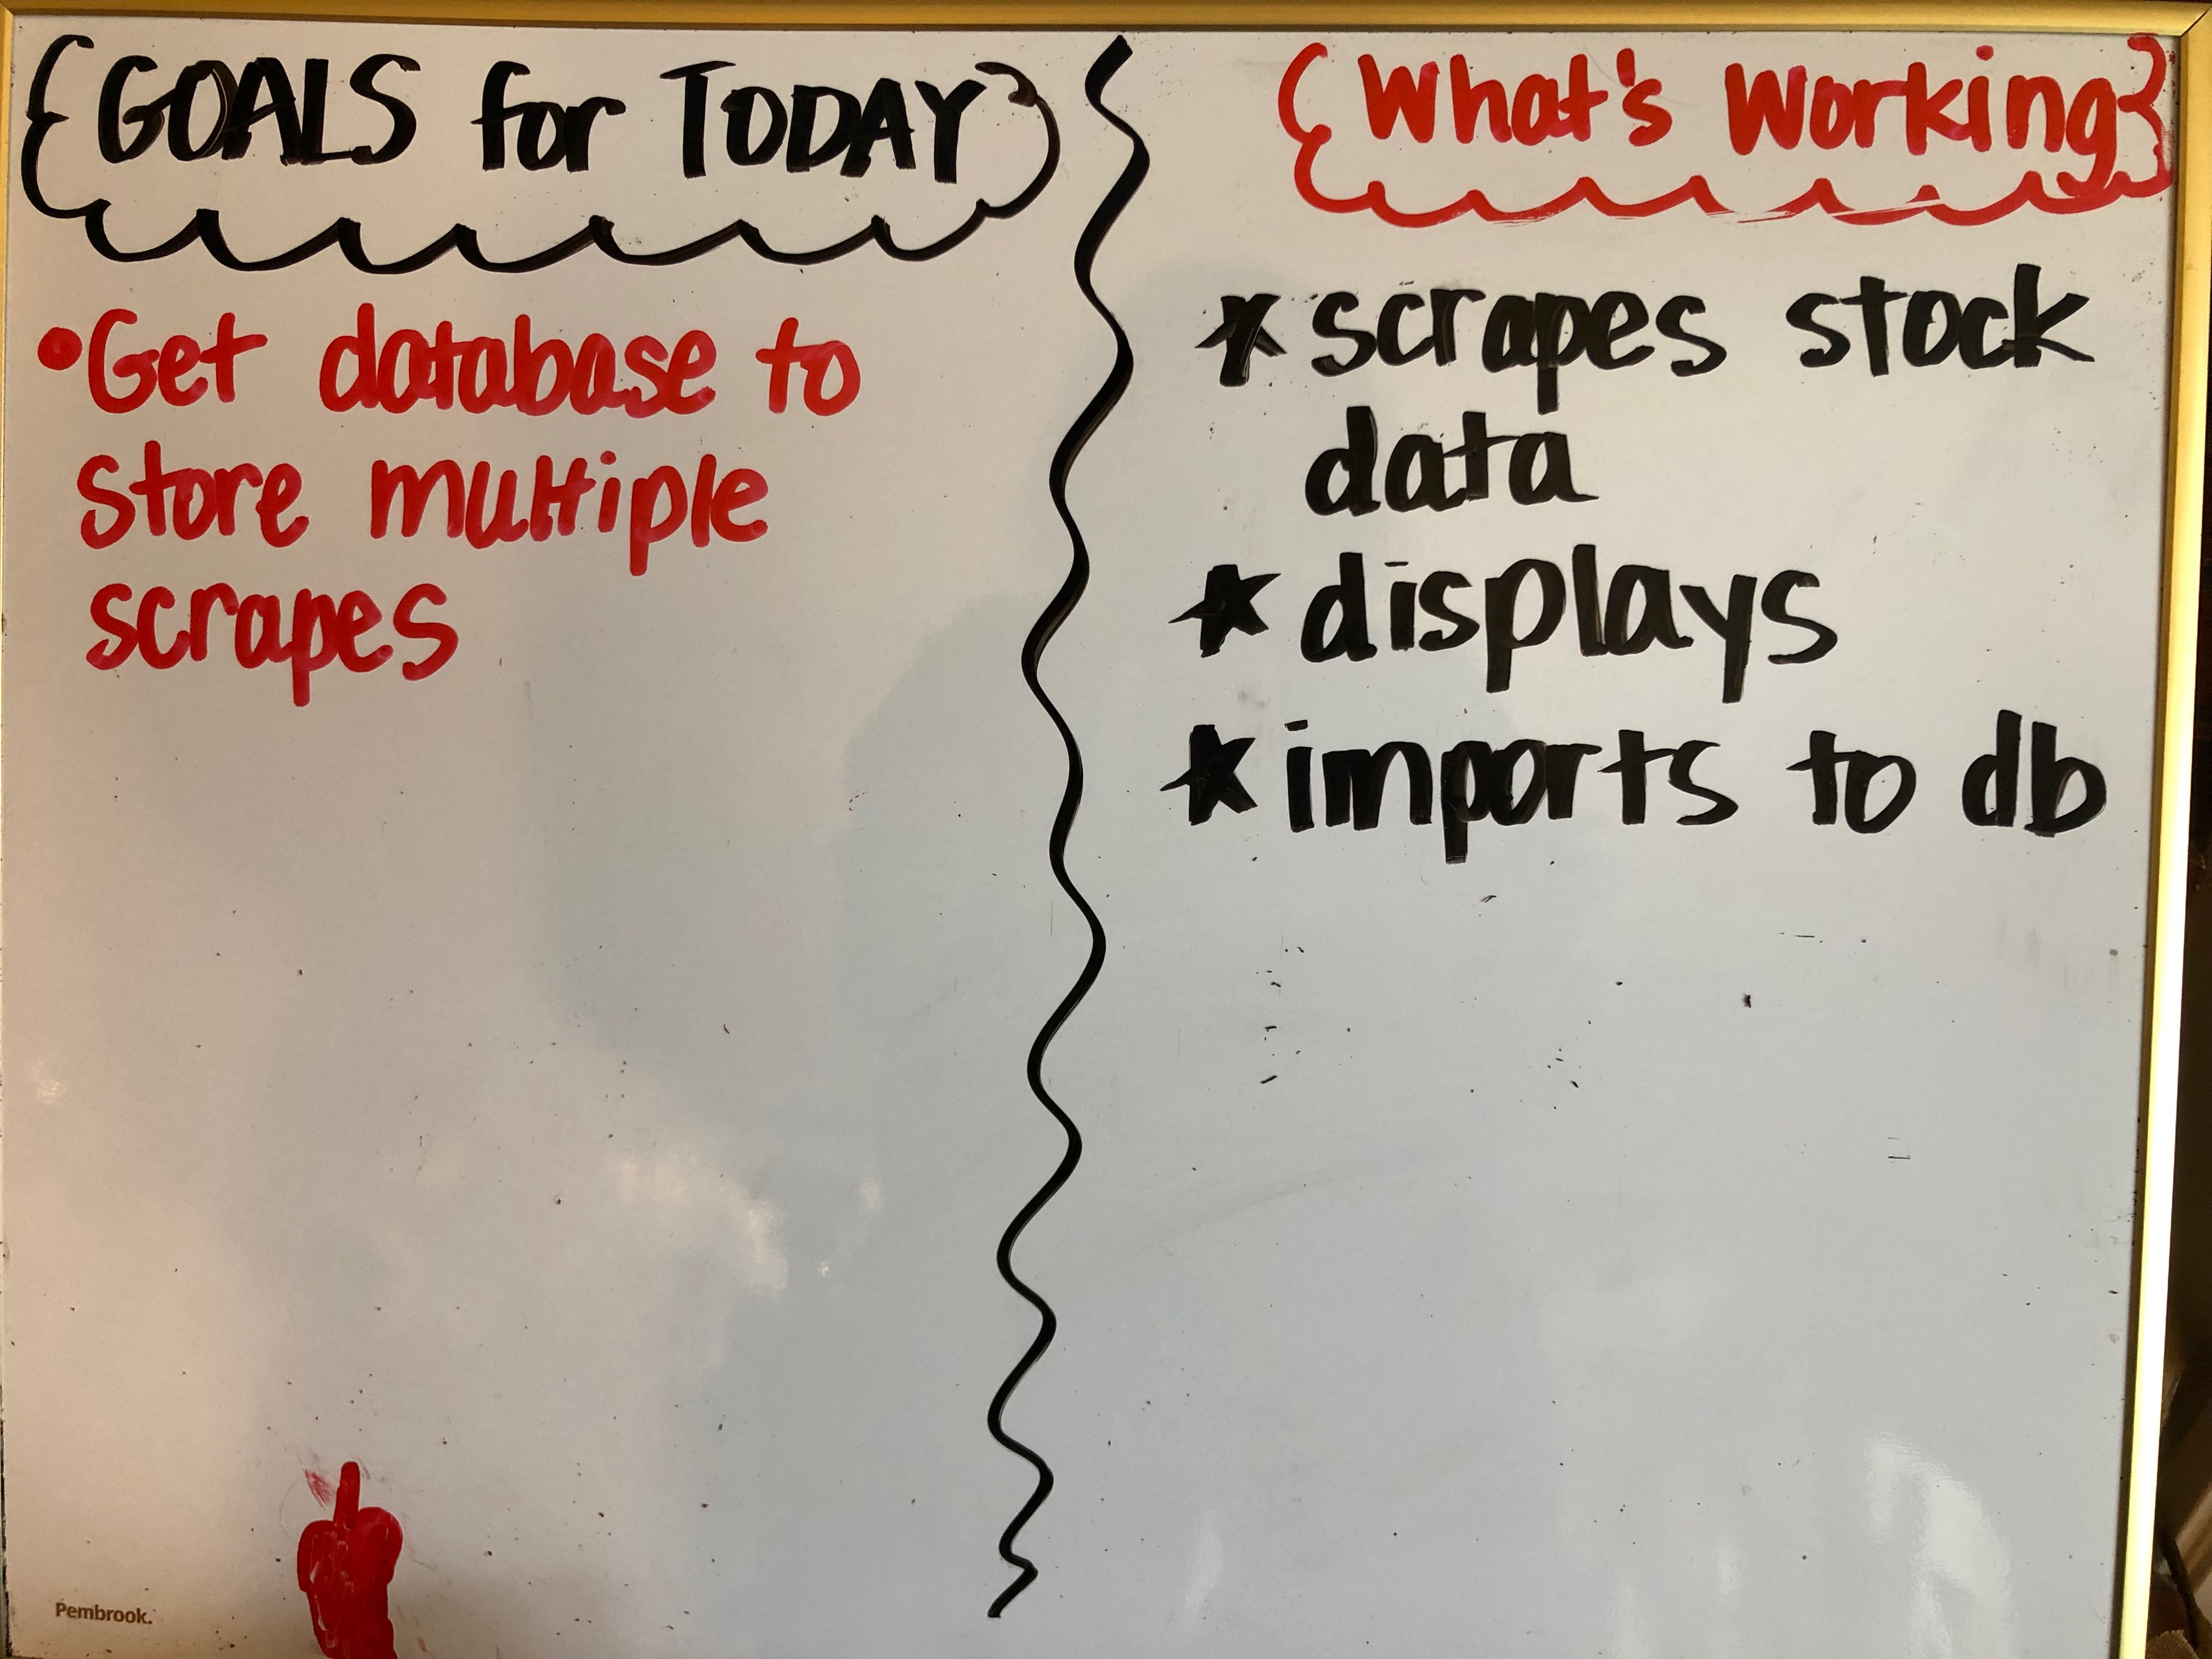 GOALS for TODAY
•Get database to
store multiple
scrapes
What's Working
★ scrapes stock
data
★ displays
★ imports to db
Pembrook.